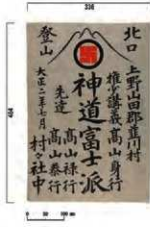 336
北口
登山
上野山田郡韮川村
権少講義高山身行
神道富士派
先達
高山禄行
高山泰行
大正二年七月
村々社中